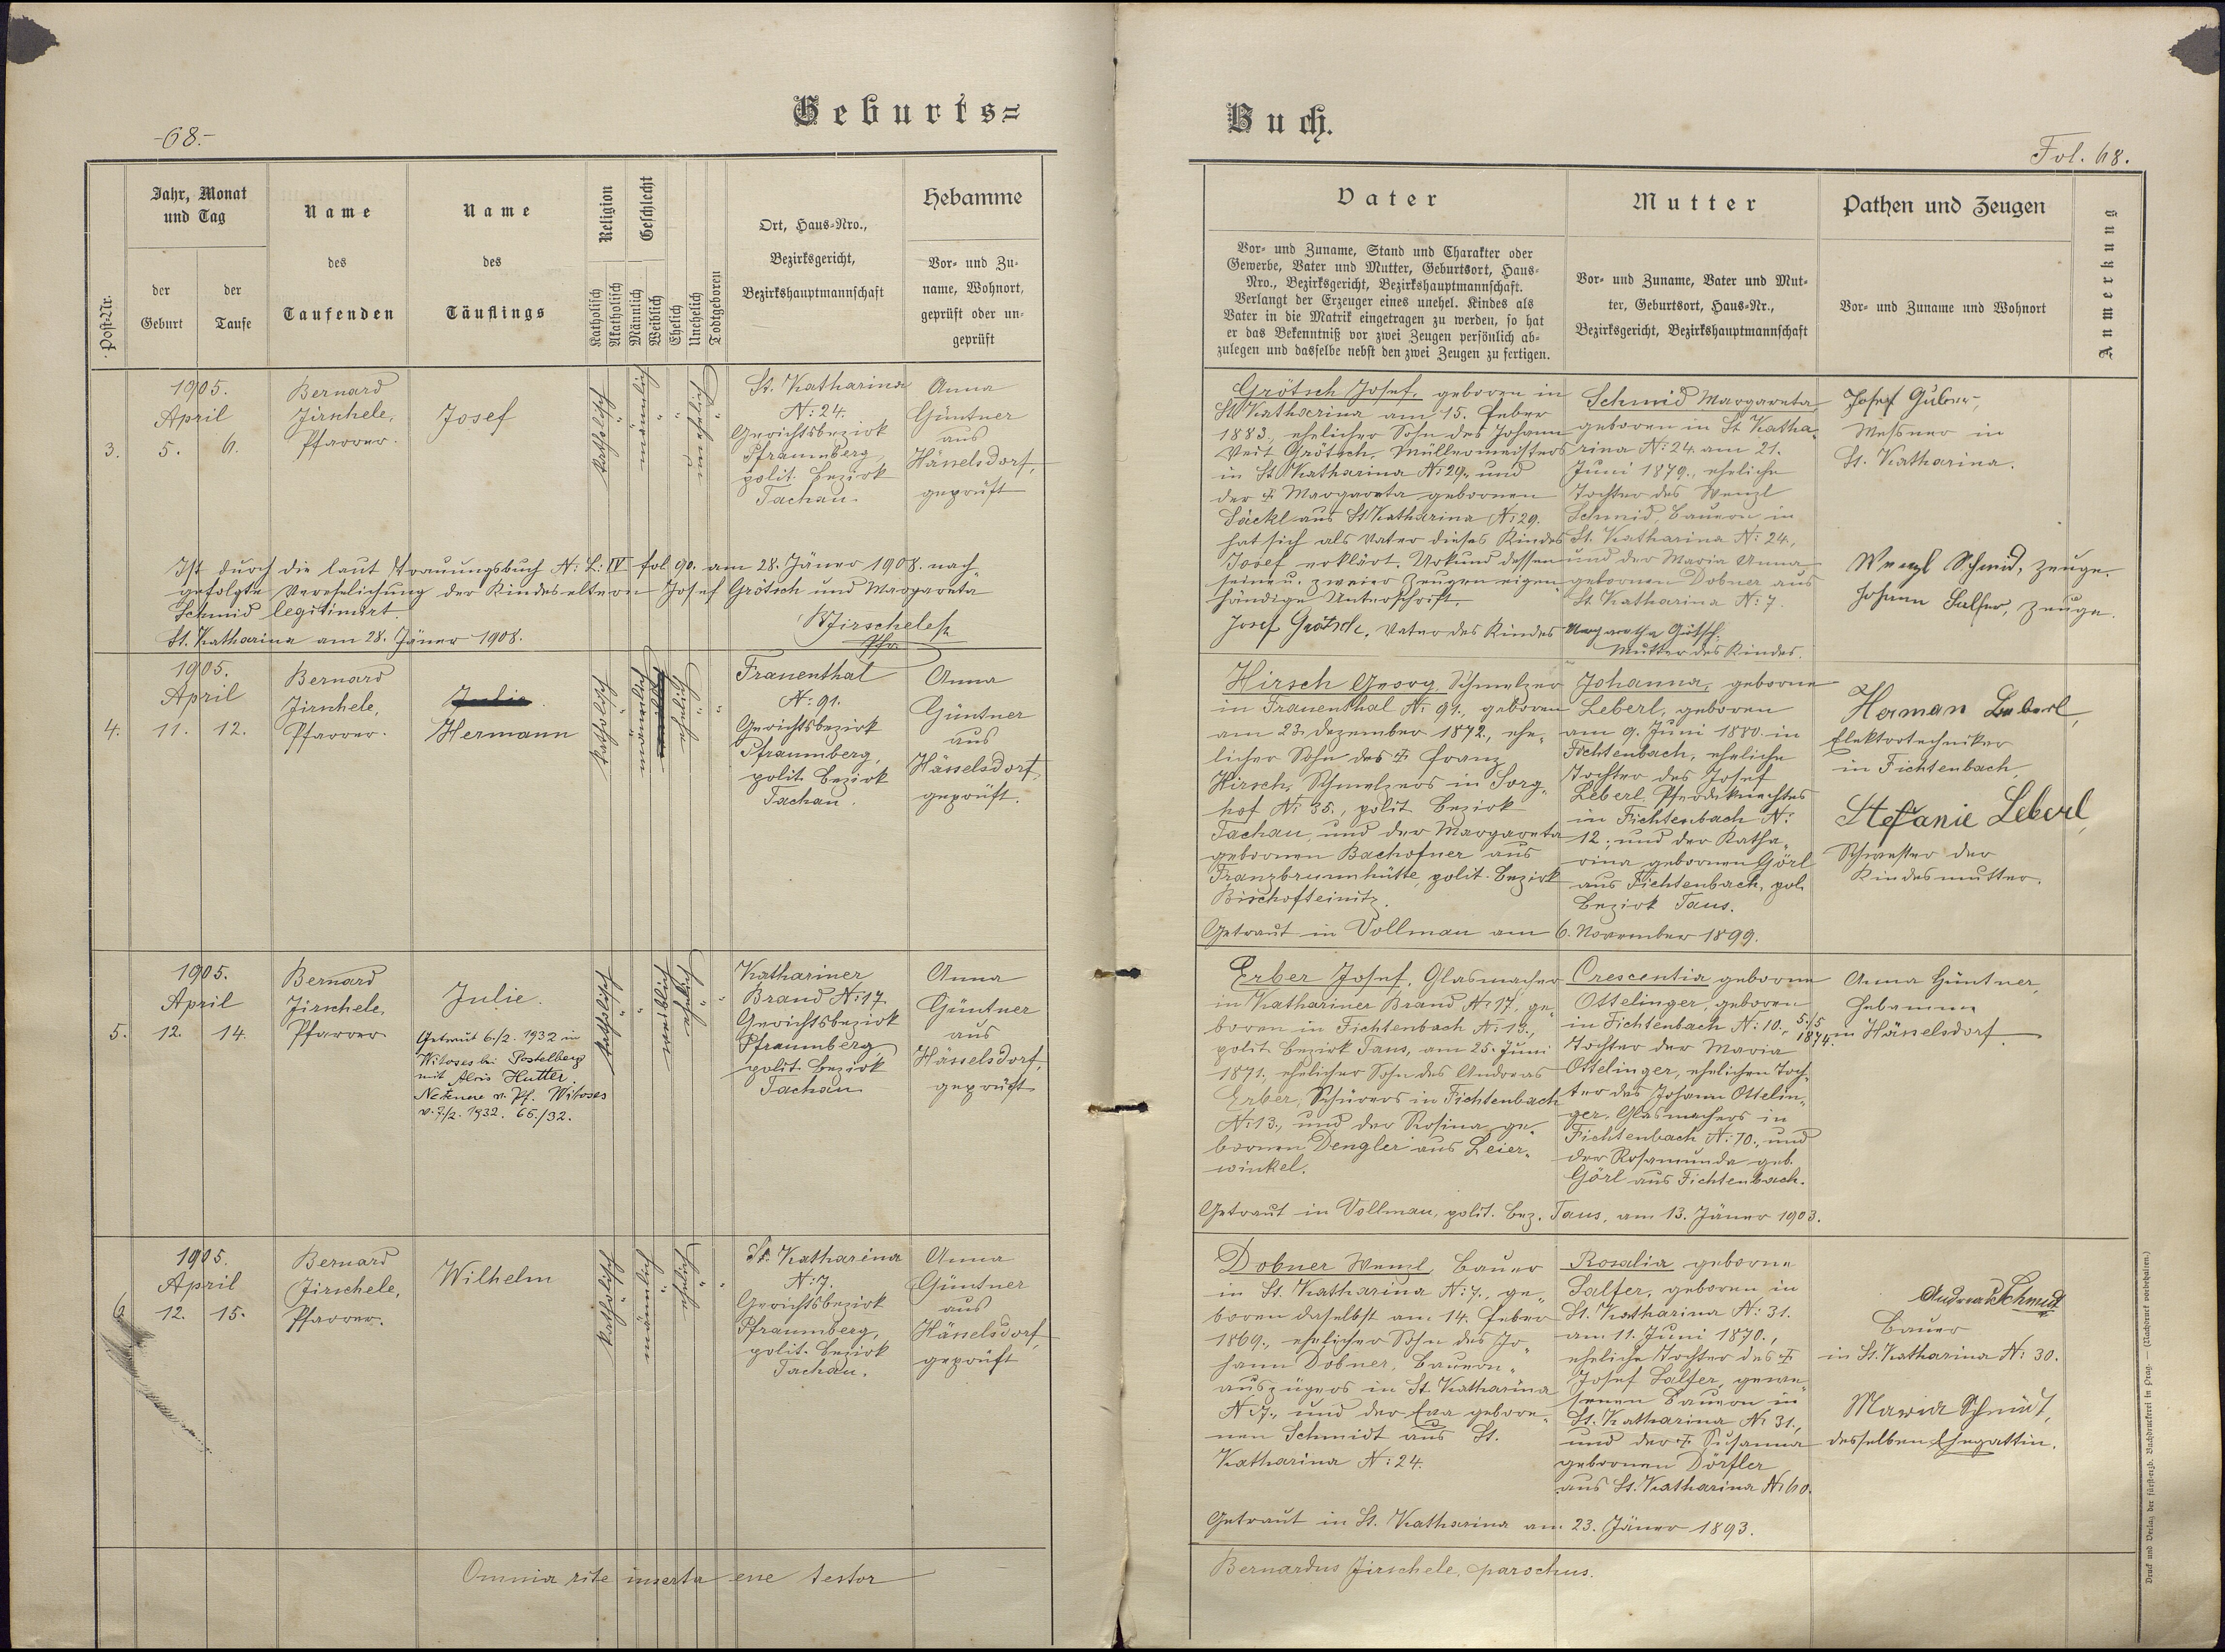 Geburts=
Buch.
-68.-
Fol. 68.
Post-Nr.
Jahr, Monat
und Tag
der
Geburt
der
Taufe
Name
des
Taufenden
Name
des
Täuflings
Religion
Katholisch
Akatholisch
Geschlecht
Männlich
Weiblich
Ehelich
Unehelich
Todtgeboren
Ort, Haus-Nro.,
Bezirksgericht,
Bezirkshauptmannschaft
Hebamme
Vor- und Zu-
name, Wohnort,
geprüft oder un-
geprüft
Vater
Vor- und Zuname, Stand und Charakter oder
Gewerbe, Vater und Mutter, Geburtsort, Haus-
Nro., Bezirksgericht, Bezirkshauptmannschaft.
Verlangt der Erzeuger eines unehel. Kindes als
Vater in die Matrik eingetragen zu werden, so hat
er das Bekenntniß vor zwei Zeugen persönlich ab-
zulegen und dasselbe nebst den zwei Zeugen zu fertigen.
Mutter
Vor- und Zuname, Vater und Mut-
ter, Geburtsort, Haus-Nr.,
Bezirksgericht, Bezirkshauptmannschaft
Pathen und Zeugen
Vor- und Zuname und Wohnort
Anmerkung
3.
1905.
April
5. 6.
Bernard
Jirschele,
Pfarrer.
Josef
katholisch
männlich
unehelich
St. Katharina
N: 24.
Gerichtsbezirk
Pfraumberg,
polit. Bezirk
Tachau.
Anna
Güntner
aus
Hässelsdorf,
geprüft
Grötsch Josef, geboren in
St. Katharina am 15. Feber
1883., ehelicher Sohn des Johann
Veit Grötsch, Müllermeisters
in St. Katharina N: 29., und
der † Margareta gebornen
Säckl aus St. Katharina N: 29.
hat sich als Vater dieses Kindes
Josef erklärt. Urkund dessen
seine u. zweier Zeugen eigen-
händige Unterschrift.
Josef Grötsch, Vater des Kindes
Schmid Margareta,
geboren in St. Katha-
rina N: 24. am 21.
Juni 1879., eheliche
Tochter des Wenzl
Schmid, Bauern in
St. Katharina N: 24.,
und der Maria Anna
gebornen Dobner aus
St. Katharina N: 7.
Margaretha Götsch,
Mutter des Kindes.
Josef Gubner,
Messner in
St. Katharina.
Wenzl Schmid, Zeuge.
Johann Salfer, Zeuge.
Ist durch die laut Trauungsbuch N: L: IV fol 90. am 28. Jäner 1908. nach-
gefolgte Verehelichung der Kindeseltern Josef Grötsch und Margareta
Schmid legitimirt.
St. Katharina am 28. Jäner 1908.
BJirschele
Pfr
4.
1905.
April
11. 12.
Bernard
Jirschele,
Pfarrer.
Julie
Hermann
katholisch
männlich
Eheliche
Frauenthal
N: 91.
Gerichtsbezirk
Pfraumberg,
polit. Bezirk
Tachau.
Anna
Güntner
aus
Hässelsdorf,
geprüft.
Hirsch Georg, Schmelzer
in Frauenthal N: 91., geboren
am 23. Dezember 1872., ehe-
licher Sohn des † Franz
Hirsch, Schmelzers in Sorg-
hof N: 35., polit. Bezirk
Tachau, und der Margareta
gebornen Bachofner aus
Franzbrunnhütte, polit. Bezirk
Bischofteinitz.
Johanna, geborne
Leberl, geboren
am 9. Juni 1880. in
Fichtenbach, eheliche
Tochter des Josef
Leberl, Pferdeknechtes
in Fichtenbach N:
12., und der Katha-
rina gebornen Görl
aus Fichtenbach, pol.
Bezirk Taus.
Getraut in Vollmau am 6. November 1899.
Herman Leberl,
Elektrotechniker
in Fichtenbach
Stefanie Leberl,
Schwester der
Kindesmutter.
5.
1905.
April
12. 14.
Bernard
Jirschele,
Pfarrer
Julie.
Getraut 6./2. 1932 in
Witoses bei Postelberg
mit Alois Hutter
v. Pf. Witoses
v. 7/2. 1932. 65./32.
katholisch
weiblich
ehelich
Kathariner
Brand N: 17
Gerichtsbezirk
Pfraumberg,
polit. Bezirk
Tachau
Anna
Güntner
aus
Hässelsdorf,
geprüft
Erber Josef, Glasmacher
in Kathariner Brand N: 17, ge-
boren in Fichtenbach N: 13.,
polit. Bezirk Taus, am 25. Juni
1871., ehelicher Sohn des Andreas
Erber, Schürers in Fichtenbach
N: 13., und der Rosina, ge-
bornen Dengler aus Leier-
winkel.
Crescentia geborne
Ottelinger, geboren
in Fichtenbach N: 10., 5./5
1874.
Tochter der Maria
Ottelinger, ehelichen Toch-
ter des Johann Ottelin-
ger, Glasmachers in
Fichtenbach N: 10., und
der Rosamunda geb.
Görl aus Fichtenbach.
Getraut in Vollmau, polit. Bez. Taus, am 13. Jäner 1903.
Anna Güntner,
Hebamme
in Hässelsdorf.
6.
1905.
April
12. 15.
Bernard
Jirschele,
Pfarrer.
Wilhelm
katholisch
männlich
ehelich
St. Katharina
N: 7.
Gerichtsbezirk
Pfraumberg,
polit. Bezirk
Tachau.
Anna
Güntner
aus
Hässelsdorf,
geprüft
Dobner Wenzl, Bauer
in St. Katharina N: 7., ge-
boren daselbst am 14. Feber
1869., ehelicher Sohn des Jo-
hann Dobner, Bauern-
auszügers in St. Katharina
N: 7., und der Eva gebore-
nen Schmidt aus St.
Katharina N: 24.
Rosalia geborne
Salfer, geboren in
St. Katharina N: 31.
am 11. Juni 1870.,
eheliche Tochter des †
Josef Salfer, gewe-
senen Bauern in
St. Katharina N: 31.,
und der † Susanna
gebornen Dörfler
aus St. Katharina N: 60.
Getraut in St. Katharina am 23. Jäner 1893.
Andreas Schmidt
Bauer
in St. Katharina N: 30.
Maria Schmidt,
desselben Ehegattin.
Omnia rite inserta esse testor
Bernardus Jirschele, parochus.
Druck und Verlag der fürsterzb. Buchdruckerei in Prag. — (Nachdruck vorbehalten.)